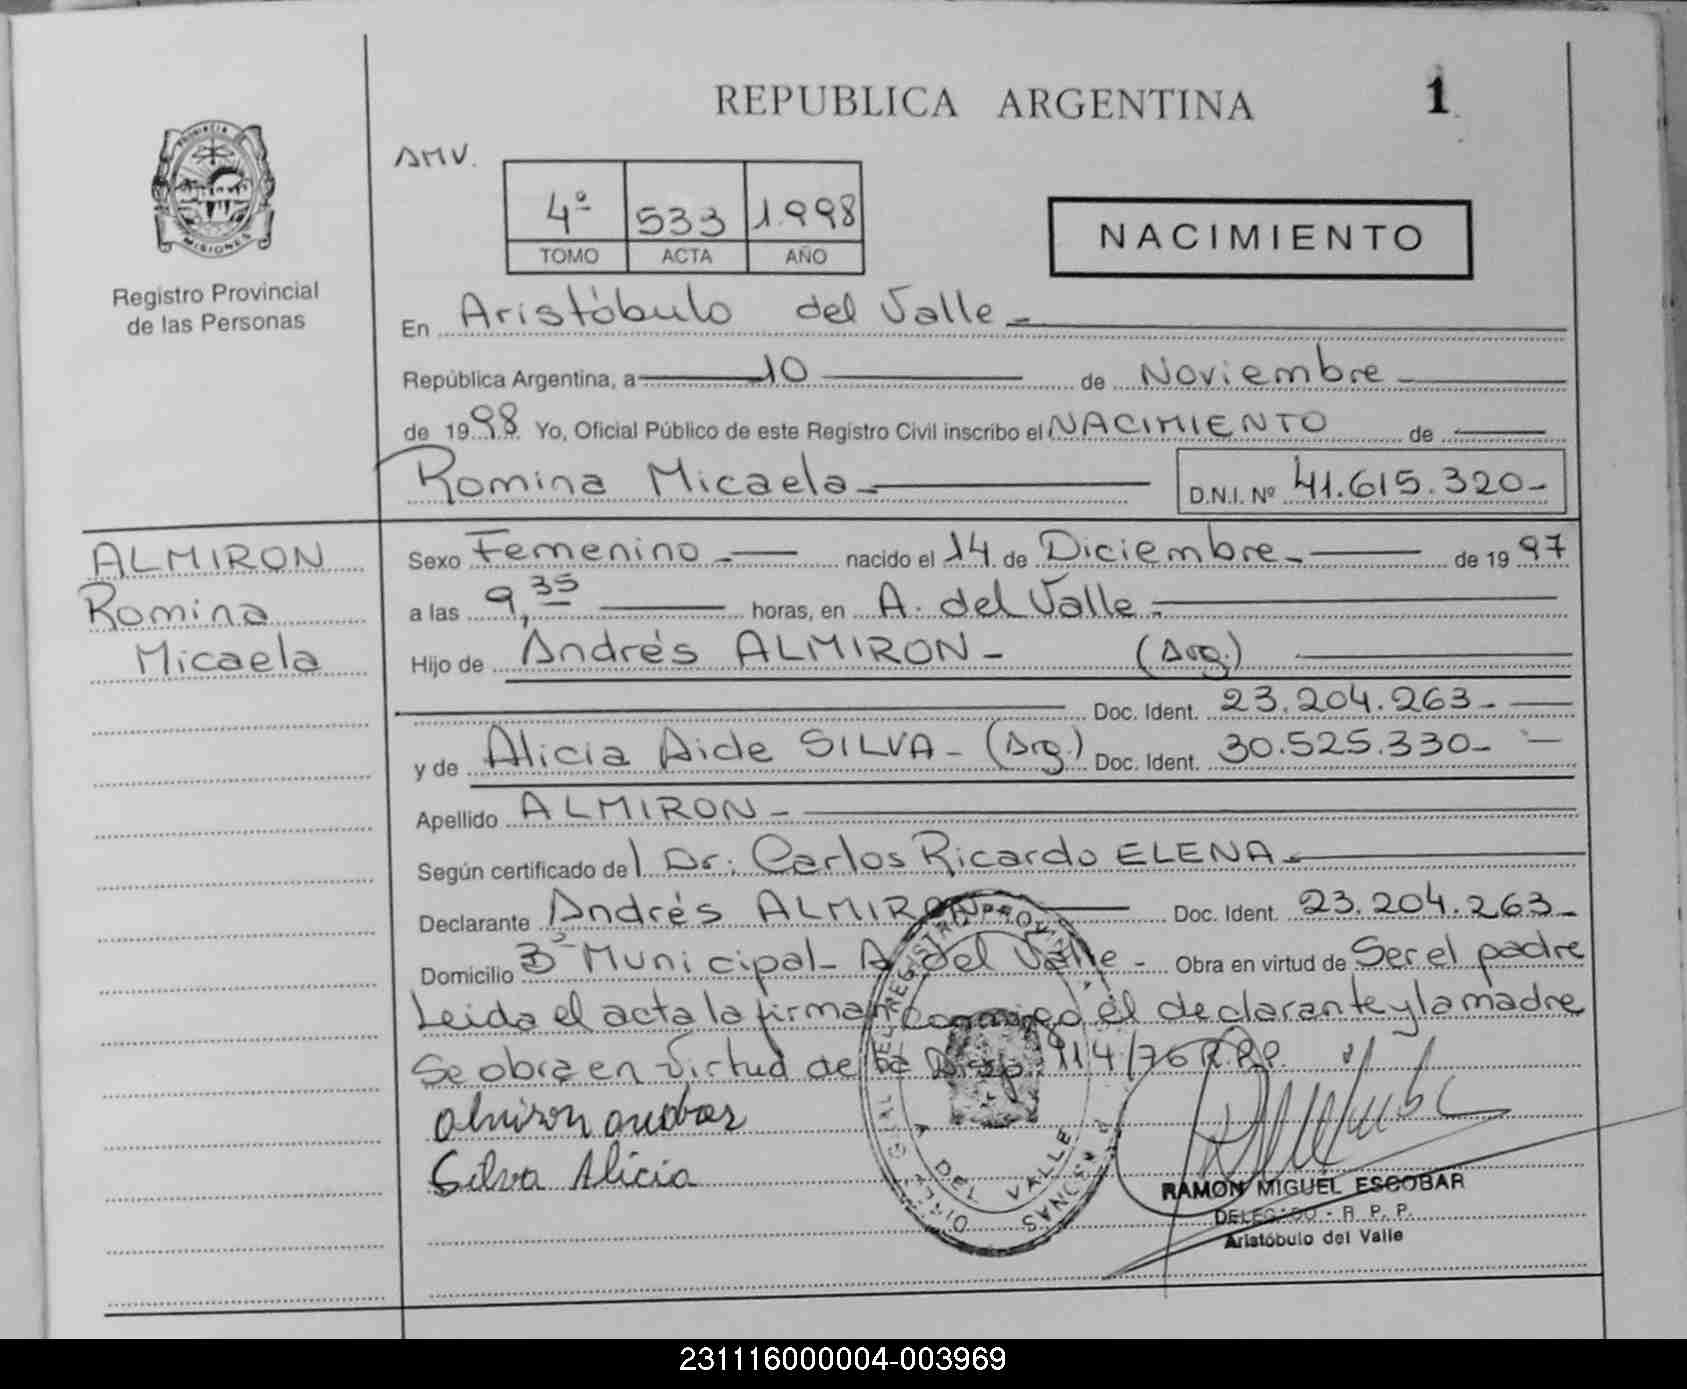 REPUBLICA ARGENTINA
1
PROVINCIA DE
MISIONES
Registro Provincial
de las Personas
AMV.
4º 533 1998
TOMO ACTA AÑO
NACIMIENTO
En Aristóbulo del Valle
República Argentina, a 10 de Noviembre
de 1998 Yo, Oficial Público de este Registro Civil inscribo el NACIMIENTO de
Romina Micaela D.N.I. Nº 41.615.320-
ALMIRON
Romina
Micaela
Sexo Femenino nacido el 14 de Diciembre de 1997
a las 9,35 horas, en A. del Valle
Hijo de Andrés ALMIRON - (Arg.)
Doc. Ident. 23.204.263-
y de Alicia Aide SILVA - (Arg.) Doc. Ident. 30.525.330-
Apellido ALMIRON -
Según certificado del Dr. Carlos Ricardo ELENA
Declarante Andrés ALMIRON Doc. Ident. 23.204.263-
Domicilio Bº Municipal - A. del Valle - Obra en virtud de Ser el padre
Leida el acta la firman conmigo el declarante y la madre
Se obra en virtud de la Disp. 114/76 R.P.P.
Silva Alicia
A. DEL VALLE
RAMON MIGUEL ESCOBAR
DELEGADO - R. P. P.
Aristóbulo del Valle
231116000004-003969